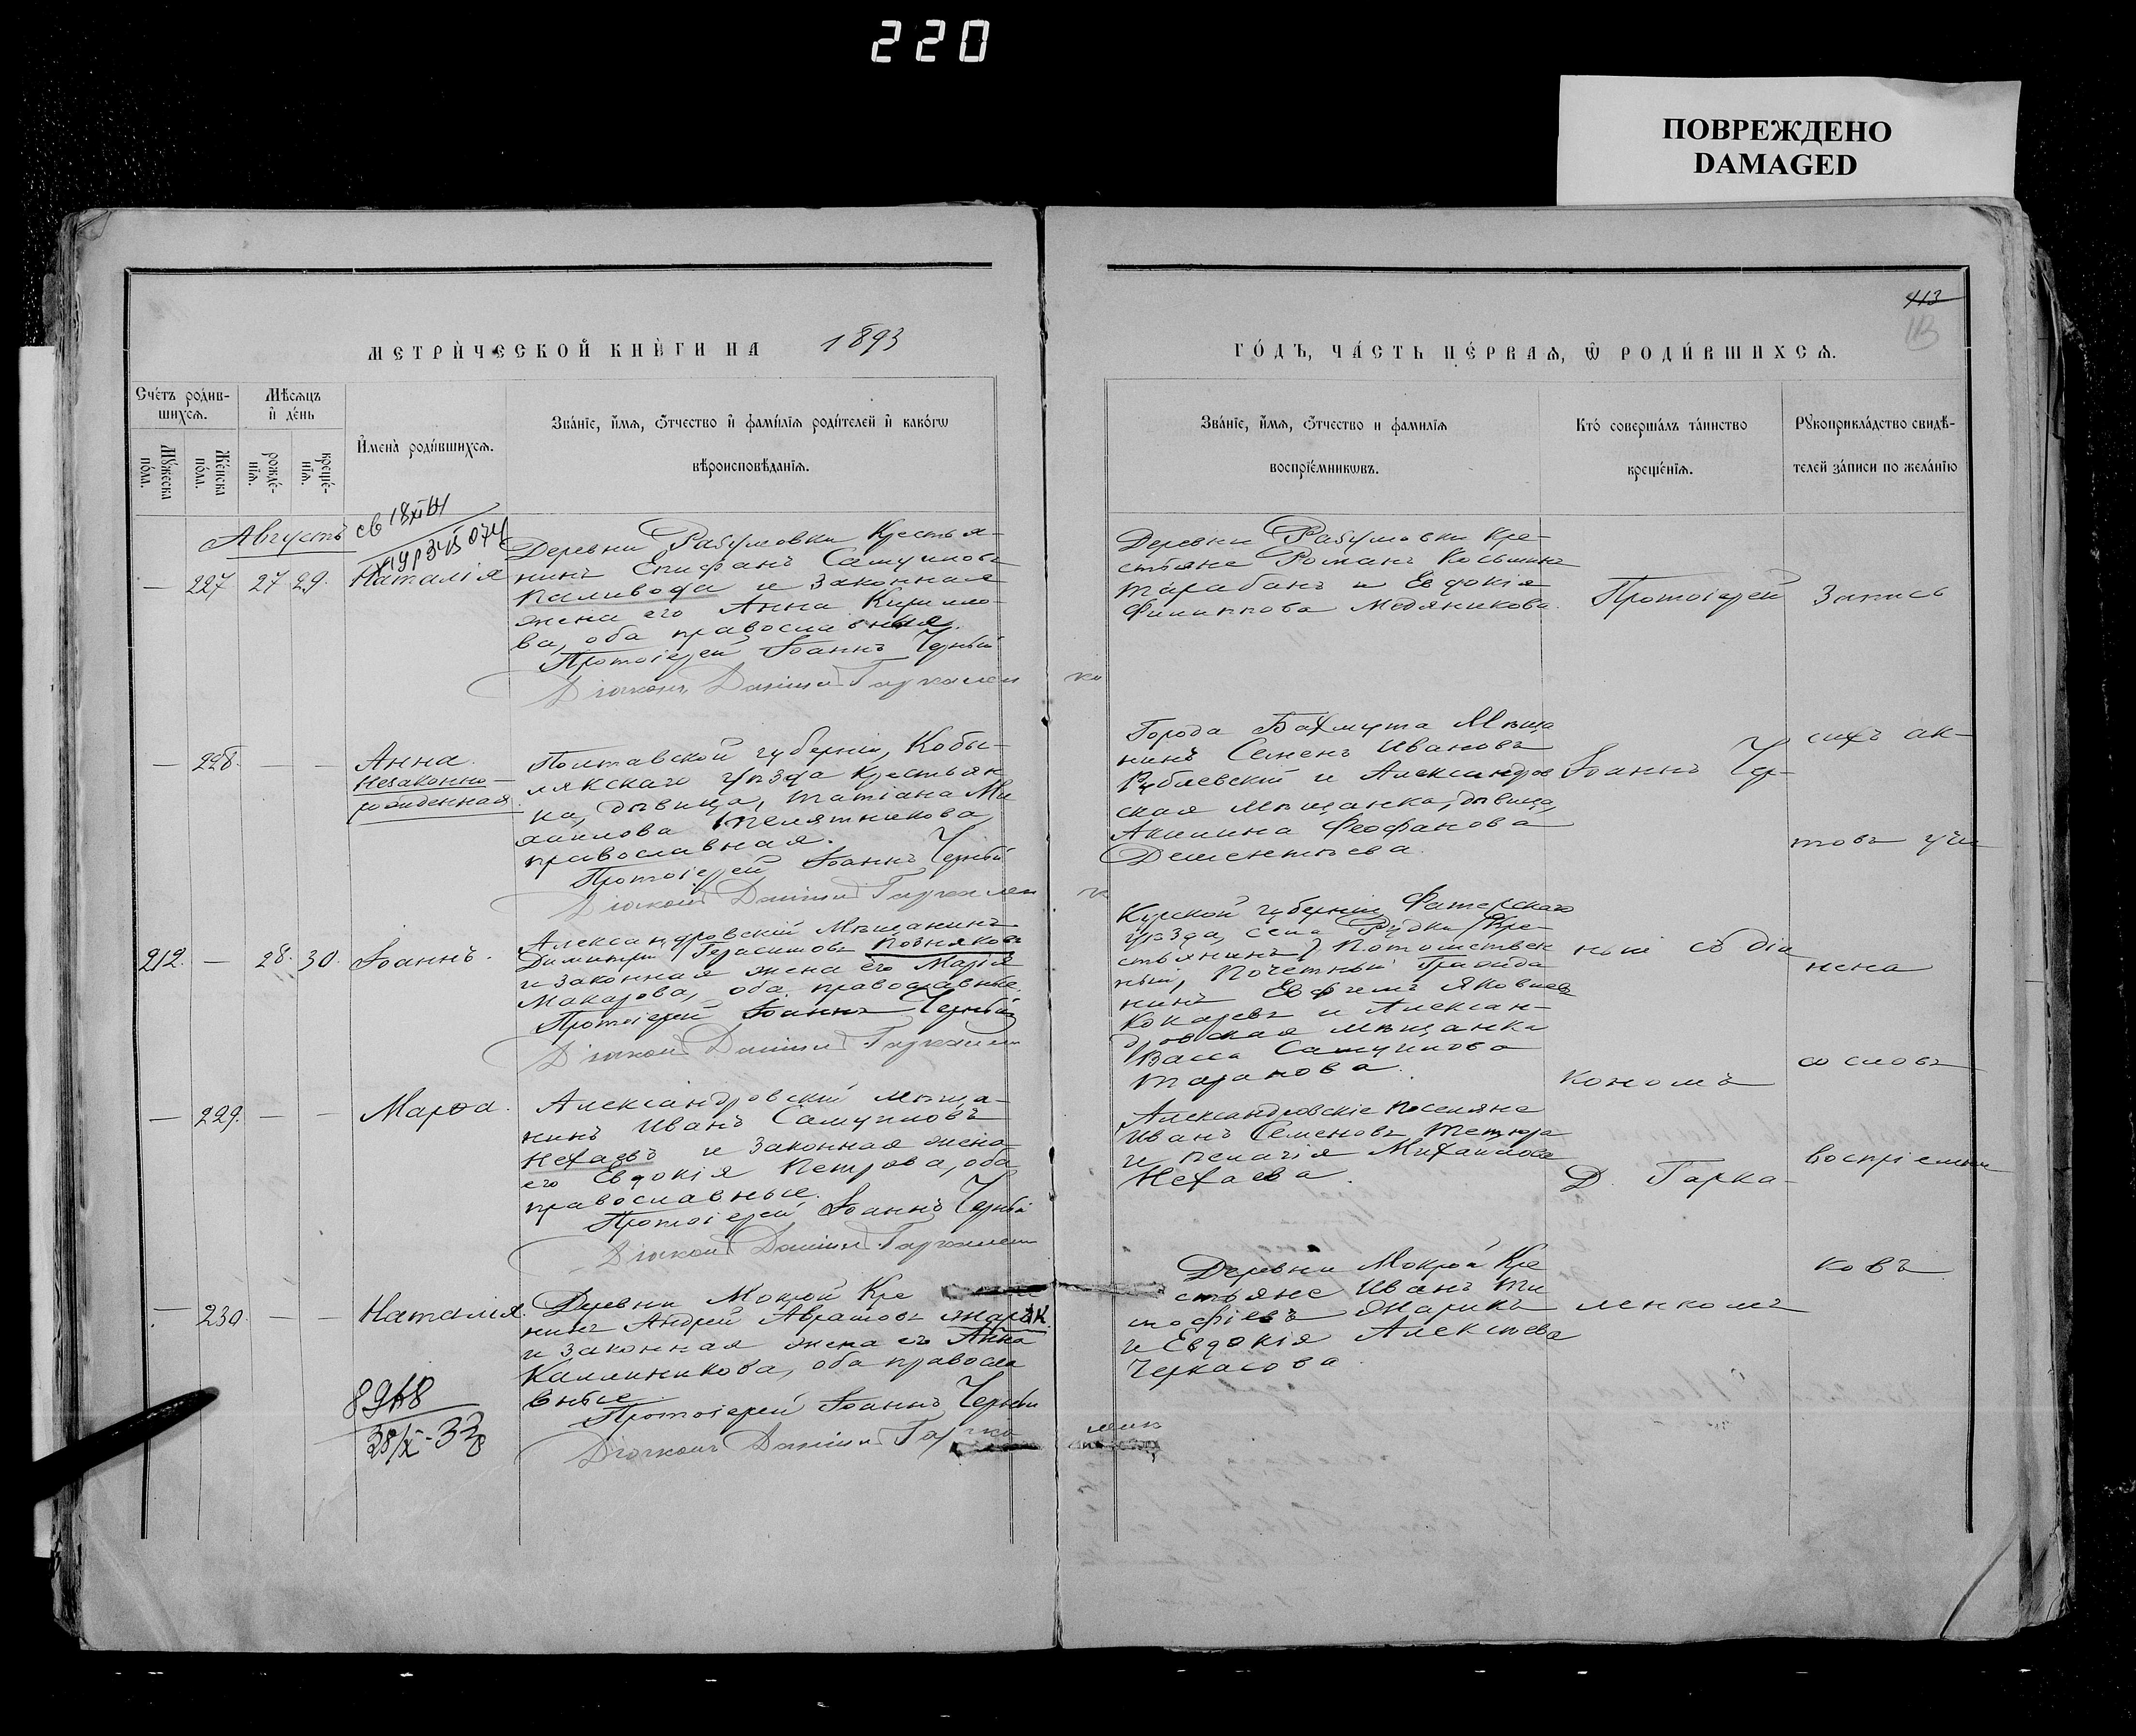 220
ПОВРЕЖДЕНО
DAMAGED
113
МЕТРИЧЕСКОЙ КНИГИ НА 1893
ГОДЪ, ЧАСТЬ ПЕРВАЯ, Ѡ РОДИВШИХСЯ.
Счетъ родив-
шихся.
Мужеска
пола.
Женска
пола.
Мѣсяцъ
и день
рожде-
нія.
креще-
нія.
Имена родившихся.
Званіе, имя, отчество и фамилія родителей и какогѡ
вѣроисповѣданія.
Званіе, имя, отчество и фамилія
воспріемникѡвъ.
Кто совершалъ таинство
крещенія.
Рукоприкладство свидѣ-
телей записи по желанію
Августъ
— 227 27 29. Наталія
Деревни Рабумовки Крестья-
нинъ Епифанъ Самуиловъ
Паливода и законная
жена его Анна Кирилло-
ва, оба православные.
Протоіерей Іоаннъ Черный
Діаконъ Даніилъ Гаркаленко
Деревни Рабумовки Кре-
стьяне Романъ Косьминъ
Тарабанъ и Евдокія
Филиппова Медяникова.
Протоіерей
Запись
— 228. — — Анна
Незаконно-
рожденная.
Полтавской губерніи, Кобы-
лякскаго уѣзда крестьян
ка, дѣвица, Татіана Ми
хаилова Пелятникова,
православная.
Протоіерей Іоаннъ Черный
Діаконъ Даніилъ Гаркаленко
Города Бахмута Мѣща
нинъ Семенъ Ивановъ
Рублевскій и Александров
ская мѣщанка, дѣвица,
Акилина Феофанова
Дементьева.
Іоаннъ Чер-
сихъ ак-
товъ учи
212. — 28. 30. Іоаннъ.
Александровскій Мѣщанинъ
Димитрій Герасимовъ Позняковъ
и законная жена его Марія
Макарова, оба православные.
Протоіерей Іоаннъ Черный
Діаконъ Даніилъ Гаркаленко
Курской губерніи, Фатежскаго
уѣзда, села Рудки (Кре-
стьянинъ) Потомствен
ный, Почетный Гражда
нинъ Евфимъ Яковлевъ
Кокаревъ и Алексан-
дровская мѣщанка
Васса Самуилова
Таранова.
ный съ діа
кономъ
нена
со словъ
— 229. — — Марѳа.
Александровскій мѣща-
нинъ Иванъ Самуиловъ
Нехаевъ и законная жена
его Евдокія Петрова, оба
православные.
Протоіерей Іоаннъ Черный
Діаконъ Даніилъ Гаркаленко
Александровскіе поселяне
Иванъ Семеновъ Тетюра
и Пелагія Михаилова
Нехаева.
Д. Гарка-
воспріемни
— 230. — — Наталія.
Деревни Мокрой Кре
нинъ Андрей Аврамовъ
и законная жена его Анна
Каллиникова, оба правосла
вные.
Протоіерей Іоаннъ Черный
Діаконъ Даніилъ Гарка
Деревни Мокрой Кре
стьяне Иванъ Ти
мофіевъ Жарикъ
и Евдокія Алексѣева
Черкасова.
ленкомъ
ковъ